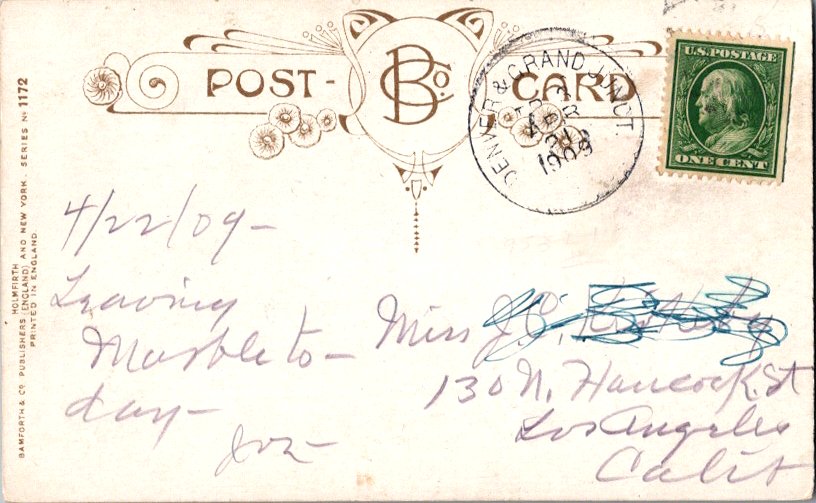 POST CARD
B Co
DENVER & GRAND JUNCT
APR
21
1909
U.S. POSTAGE
ONE CENT
4/22/09-
Leaving
Marble to-
day-
Joe-
Miss J.C.
130 N. Hancock St
Los Angeles
Calif
BAMFORTH & CO PUBLISHERS HOLMFIRTH (ENGLAND) AND NEW YORK. SERIES No 1172
PRINTED IN ENGLAND